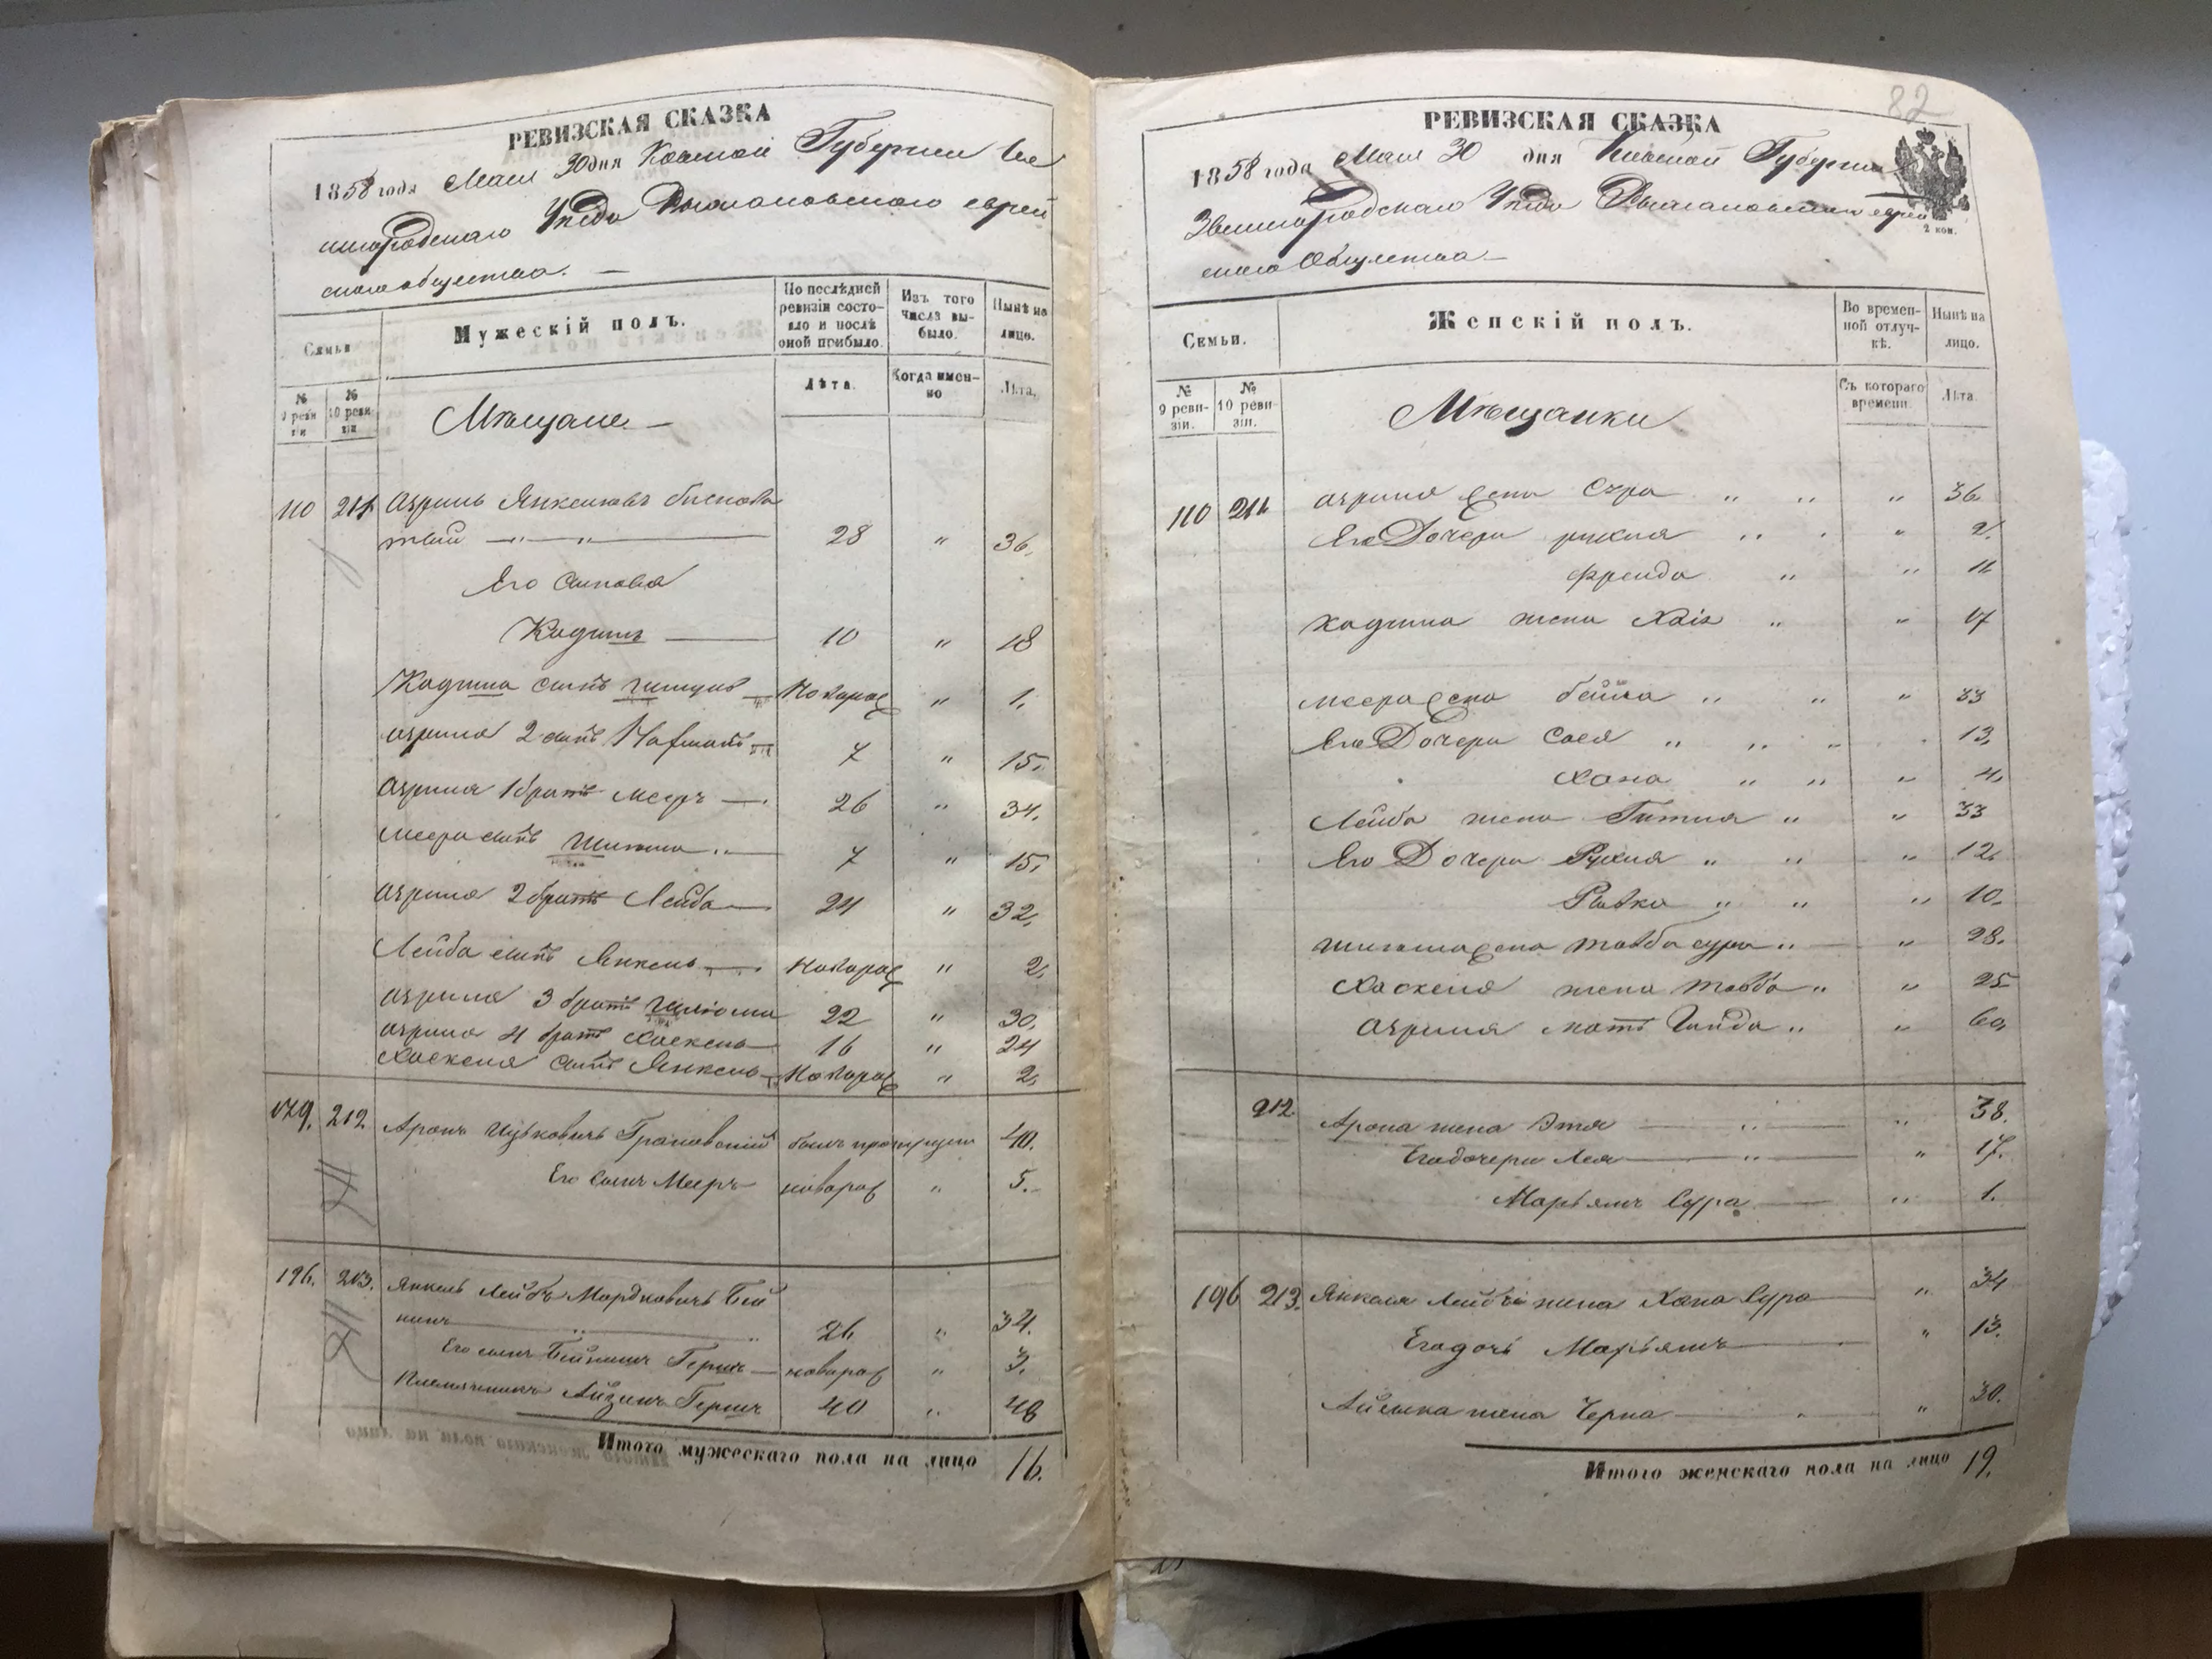 РЕВИЗСКАЯ СКАЗКА
1858 года Маія 30 дня Кіевской Губерніи Зве
нигородскаго Уѣзда еврей
скаго общества. —
Семьи
Мужескій полъ.
По послѣдней ревизіи состояло и послѣ оной прибыло.
Изъ того числа выбыло.
Нынѣ на лицо.
№ 9 ревизіи
№ 10 ревизіи
Мѣщане —
Лѣта.
Когда именно
Лѣта.
110 211 Азриль Янкелевъ
28 " 36.
Его сыновья
Кадишъ — 10 " 18
Кадиша сынъ Новорож " 1.
Азриля 2 сынъ Нафтали 7 " 15.
Азриля 1 братъ Мееръ — 26 " 34.
Меера сынъ 7 " 15.
Азриля 2 братъ Лейба — 24 " 32.
Лейба сынъ Янкель — Новорож " 2.
Азриля 3 братъ 22 " 30.
Азриля 4 братъ Хаскель 16 " 24
Хаскеля сынъ Янкель Новорож " 2.
179. 212. Аронъ Ицковичъ Грановскій былъ 40.
Его сынъ Мееръ новорож " 5.
196. 213. Янкель Лейбъ Мордковичъ Бей
нинъ 26 " 34.
Его сынъ Бейнишъ Гершъ — новорож " 3.
Племянникъ Айзикъ Гершъ 40 " 48
Итого мужескаго пола на лицо 16.
82
РЕВИЗСКАЯ СКАЗКА
1858 года Маія 30 дня Кіевской Губерніи
Звенигородскаго Уѣзда еврей
скаго Общества —
2 коп.
Семьи.
Женскій полъ.
Во временной отлучкѣ.
Нынѣ на лицо.
№ 9 ревизіи.
№ 10 ревизіи.
Мѣщанки
Съ котораго времени.
Лѣта.
110 211 Азриля жена Сура " " " 36.
Его Дочери Рухля " " " 2.
Фрейда " " 11
Кадиша жена Хаія " " 17
Меера жена Бейла " " " 33
Его Дочери Сося " " " 13.
Хана " " " 4.
Лейба жена Гитля " " 33
Его Дочери Рухля " " " 12.
Ривка " " " 10.
жена Товба Сура " " 28.
Хаскеля жена Товба " " 25
Азриля мать " " 60.
212 Арона жена Этя — " — " 38.
Его дочери Лея — " — " 17.
Марьямъ Сура — " 1.
196 213. Янкеля Лейба жена Хана Сура — " 34
Его дочь Марьямъ — " 13.
Айзика жена Черна — " 30.
Итого женскаго пола на лицо 19.